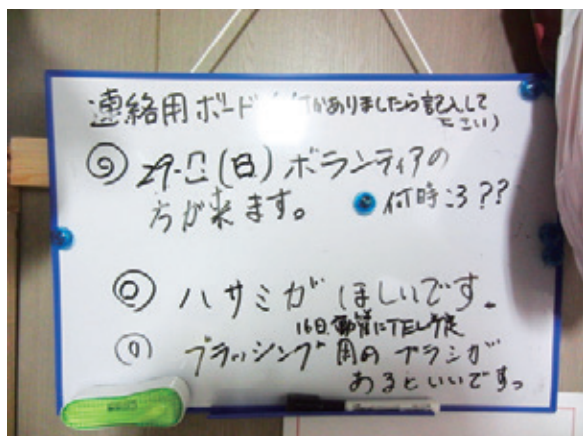 連絡用ボード 何かありましたら記入して
下さい)
◎ 29日(日)ボランティアの
方が来ます。 何時ころ??
◎ ハサミが ほしいです。
16日 にTEL予定
◎ ブラッシング用のブラシが
あるといいですっ